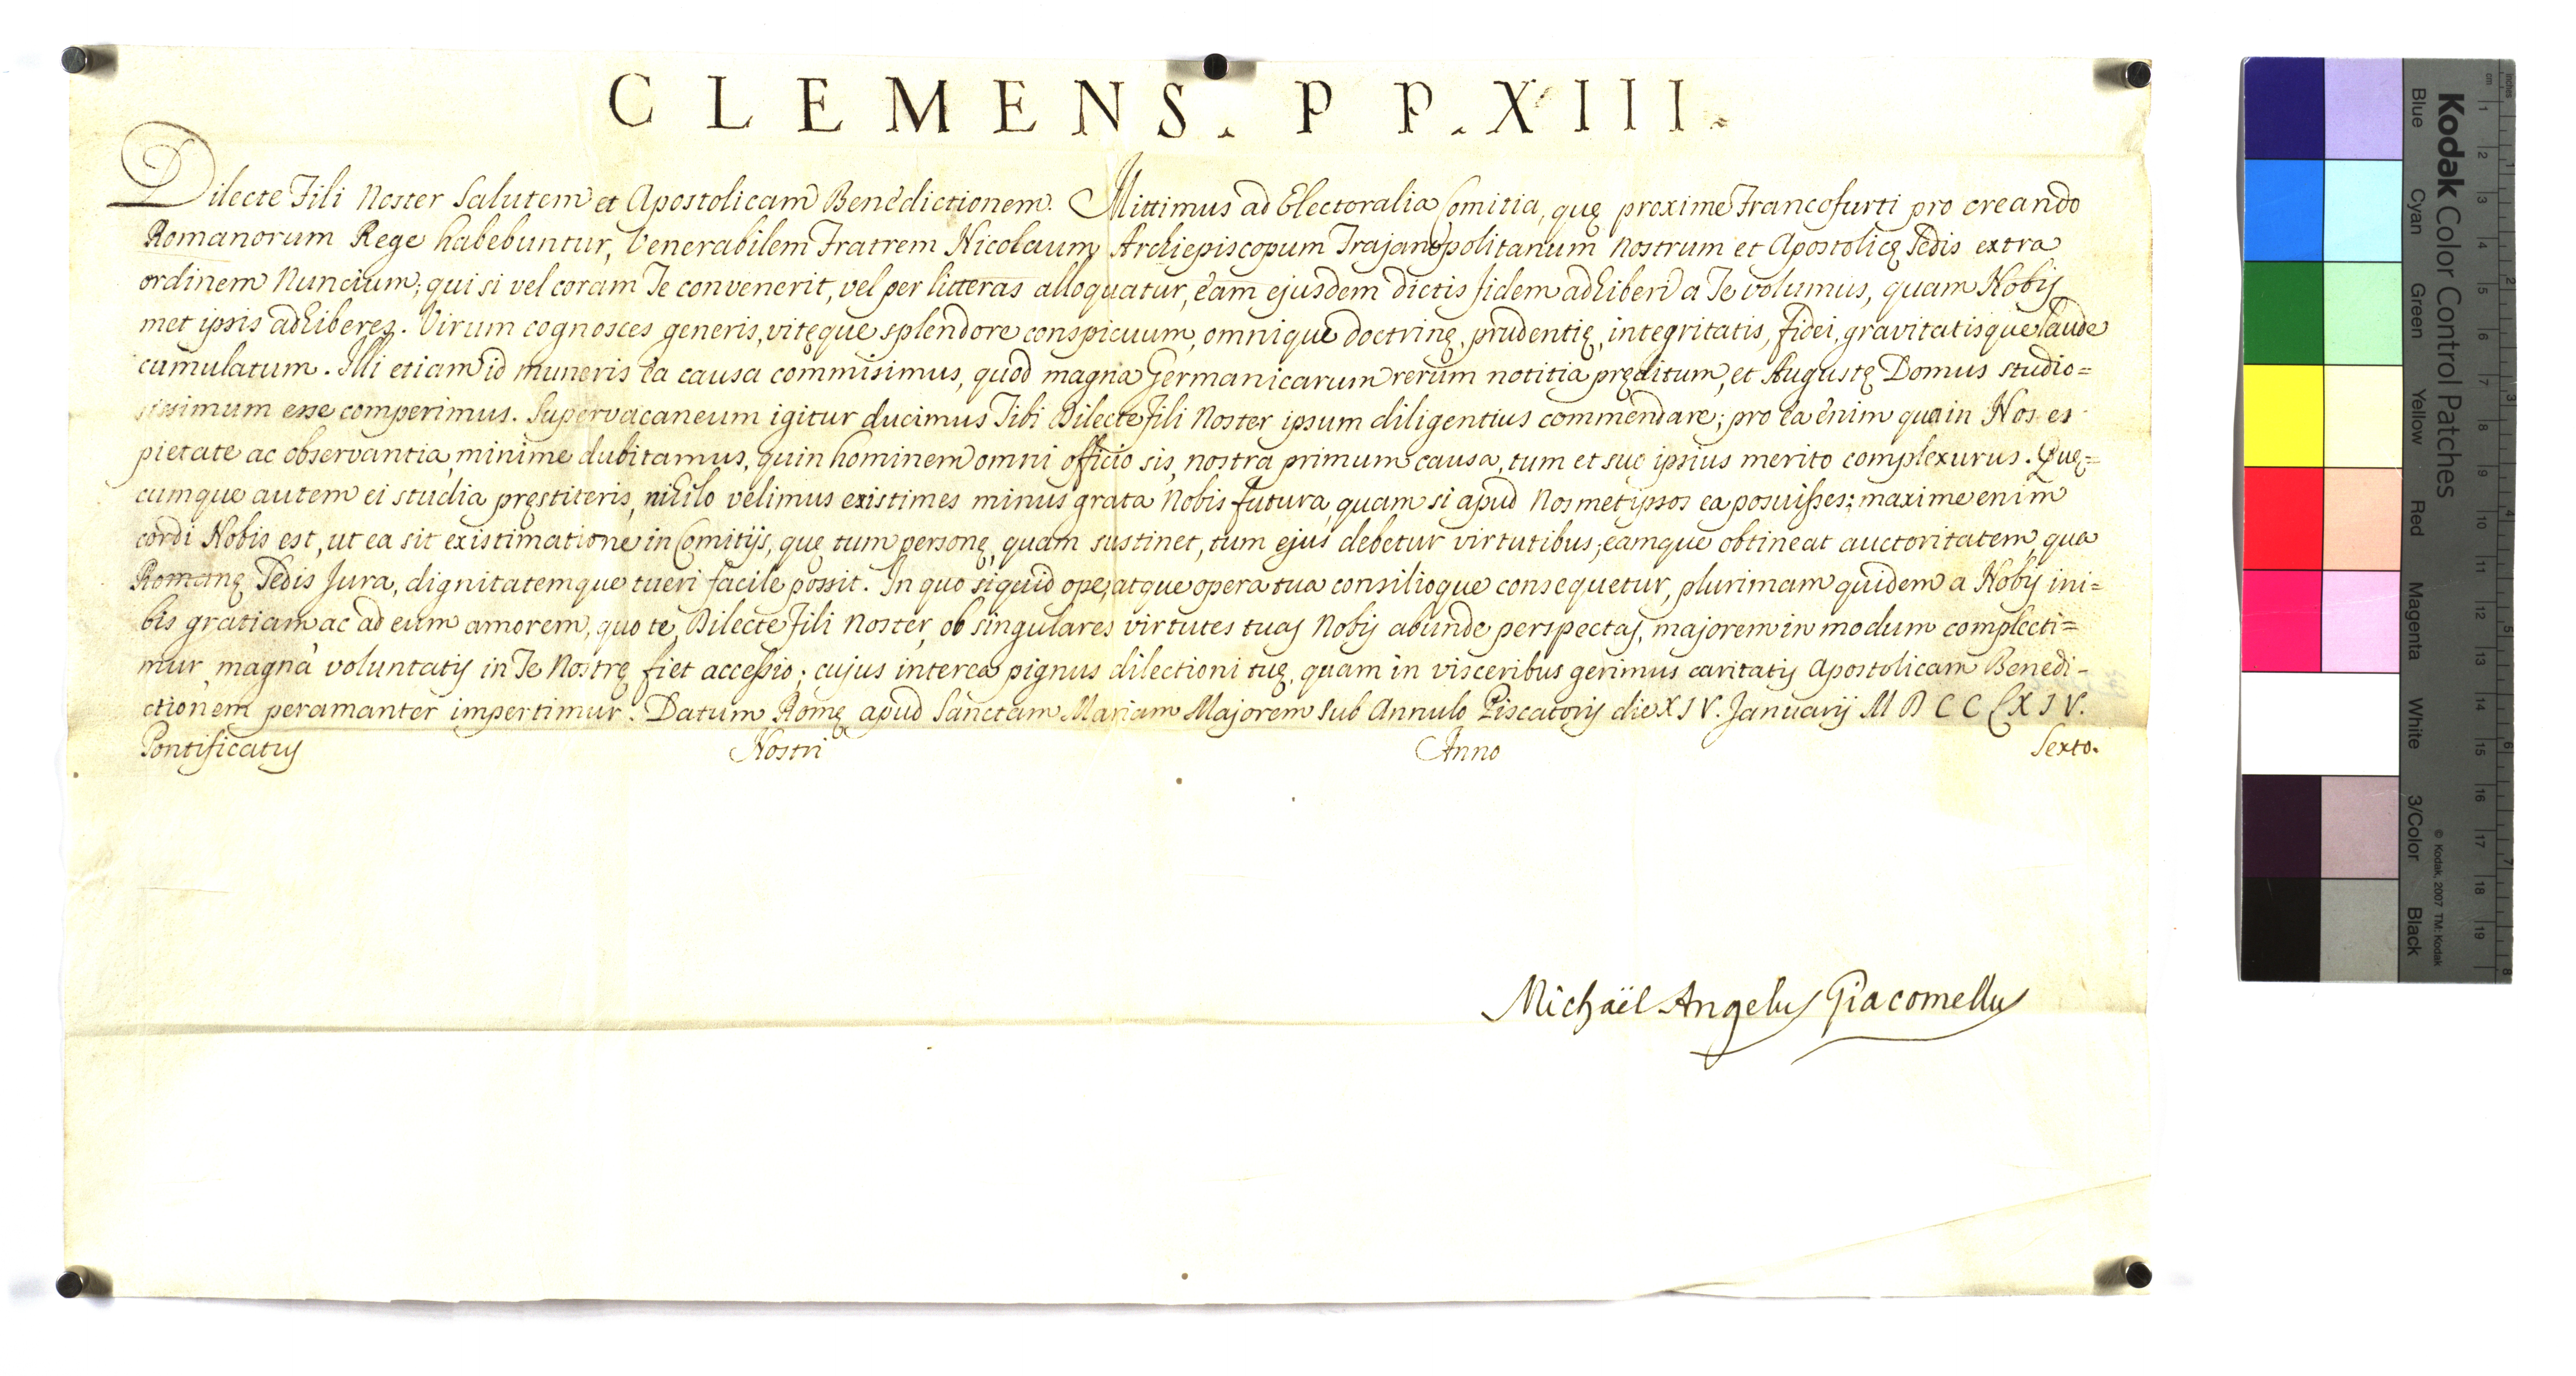 CLEMENS. PP. XIII.
Dilecte Fili Noster Salutem et Apostolicam Benedictionem. Mittimus ad Electoralia Comitia, quę proxime Francofurti pro creando
Romanorum Rege habebuntur, Venerabilem Fratrem Nicolaum Archiepiscopum Trajanopolitanum nostrum et Apostolicę Sedis extra
ordinem Nuncium; qui si vel coram Te convenerit, vel per litteras alloquatur, eam ejusdem dictis fidem adhiberi a Te volumus, quam Nobis
met ipsis adhiberes. Virum cognosces generis, vitęque splendore conspicuum, omnique doctrinę, prudentię, integritatis, fidei, gravitatisque laude
cumulatum. Illi etiam id muneris ea causa commisimus, quod magna Germanicarum rerum notitia pręditum, et Augustę Domus studio=
sissimum esse comperimus. Supervacaneum igitur ducimus Tibi Dilecte Fili Noster ipsum diligentius commendare; pro ea enim qua in Nos es
pietate ac observantia, minime dubitamus, quin hominem omni officio sis, nostra primum causa, tum et suo ipsius merito complexurus. Quę=
cumque autem ei studia pręstiteris, nihilo velimus existimes minus grata Nobis futura, quam si apud Nosmetipsos ea posuisses; maxime enim
cordi Nobis est, ut ea sit existimatione in Comitijs, quę tum personę, quam sustinet, tum ejus debetur virtutibus; eamque obtineat auctoritatem, qua
Romanę Sedis Jura, dignitatemque tueri facile possit. In quo siquid ope, atque opera tua consilioque consequetur, plurimam quidem a Nobis ini=
bis gratiam ac ad eum amorem, quo te, Dilecte Fili Noster, ob singulares virtutes tuas Nobis abunde perspectas, majorem in modum complecti=
mur, magna voluntatis in Te Nostrę fiet accessio; cujus interea pignus dilectioni tuę, quam in visceribus gerimus caritatis Apostolicam Benedi-
ctionem peramanter impertimur. Datum Romę apud Sanctam Mariam Majorem sub Annulo Piscatoris die XIV. Januarij MDCCLXIV.
Pontificatus Nostri Anno Sexto.
Michaël Angelus Giacomellus
Kodak Color Control Patches
Blue Cyan Green Yellow Red Magenta White 3/Color Black
© Kodak, 2007 TM: Kodak
cm 1 2 3 4 5 6 7 8 9 10 11 12 13 14 15 16 17 18 19
inches 1 2 3 4 5 6 7 8